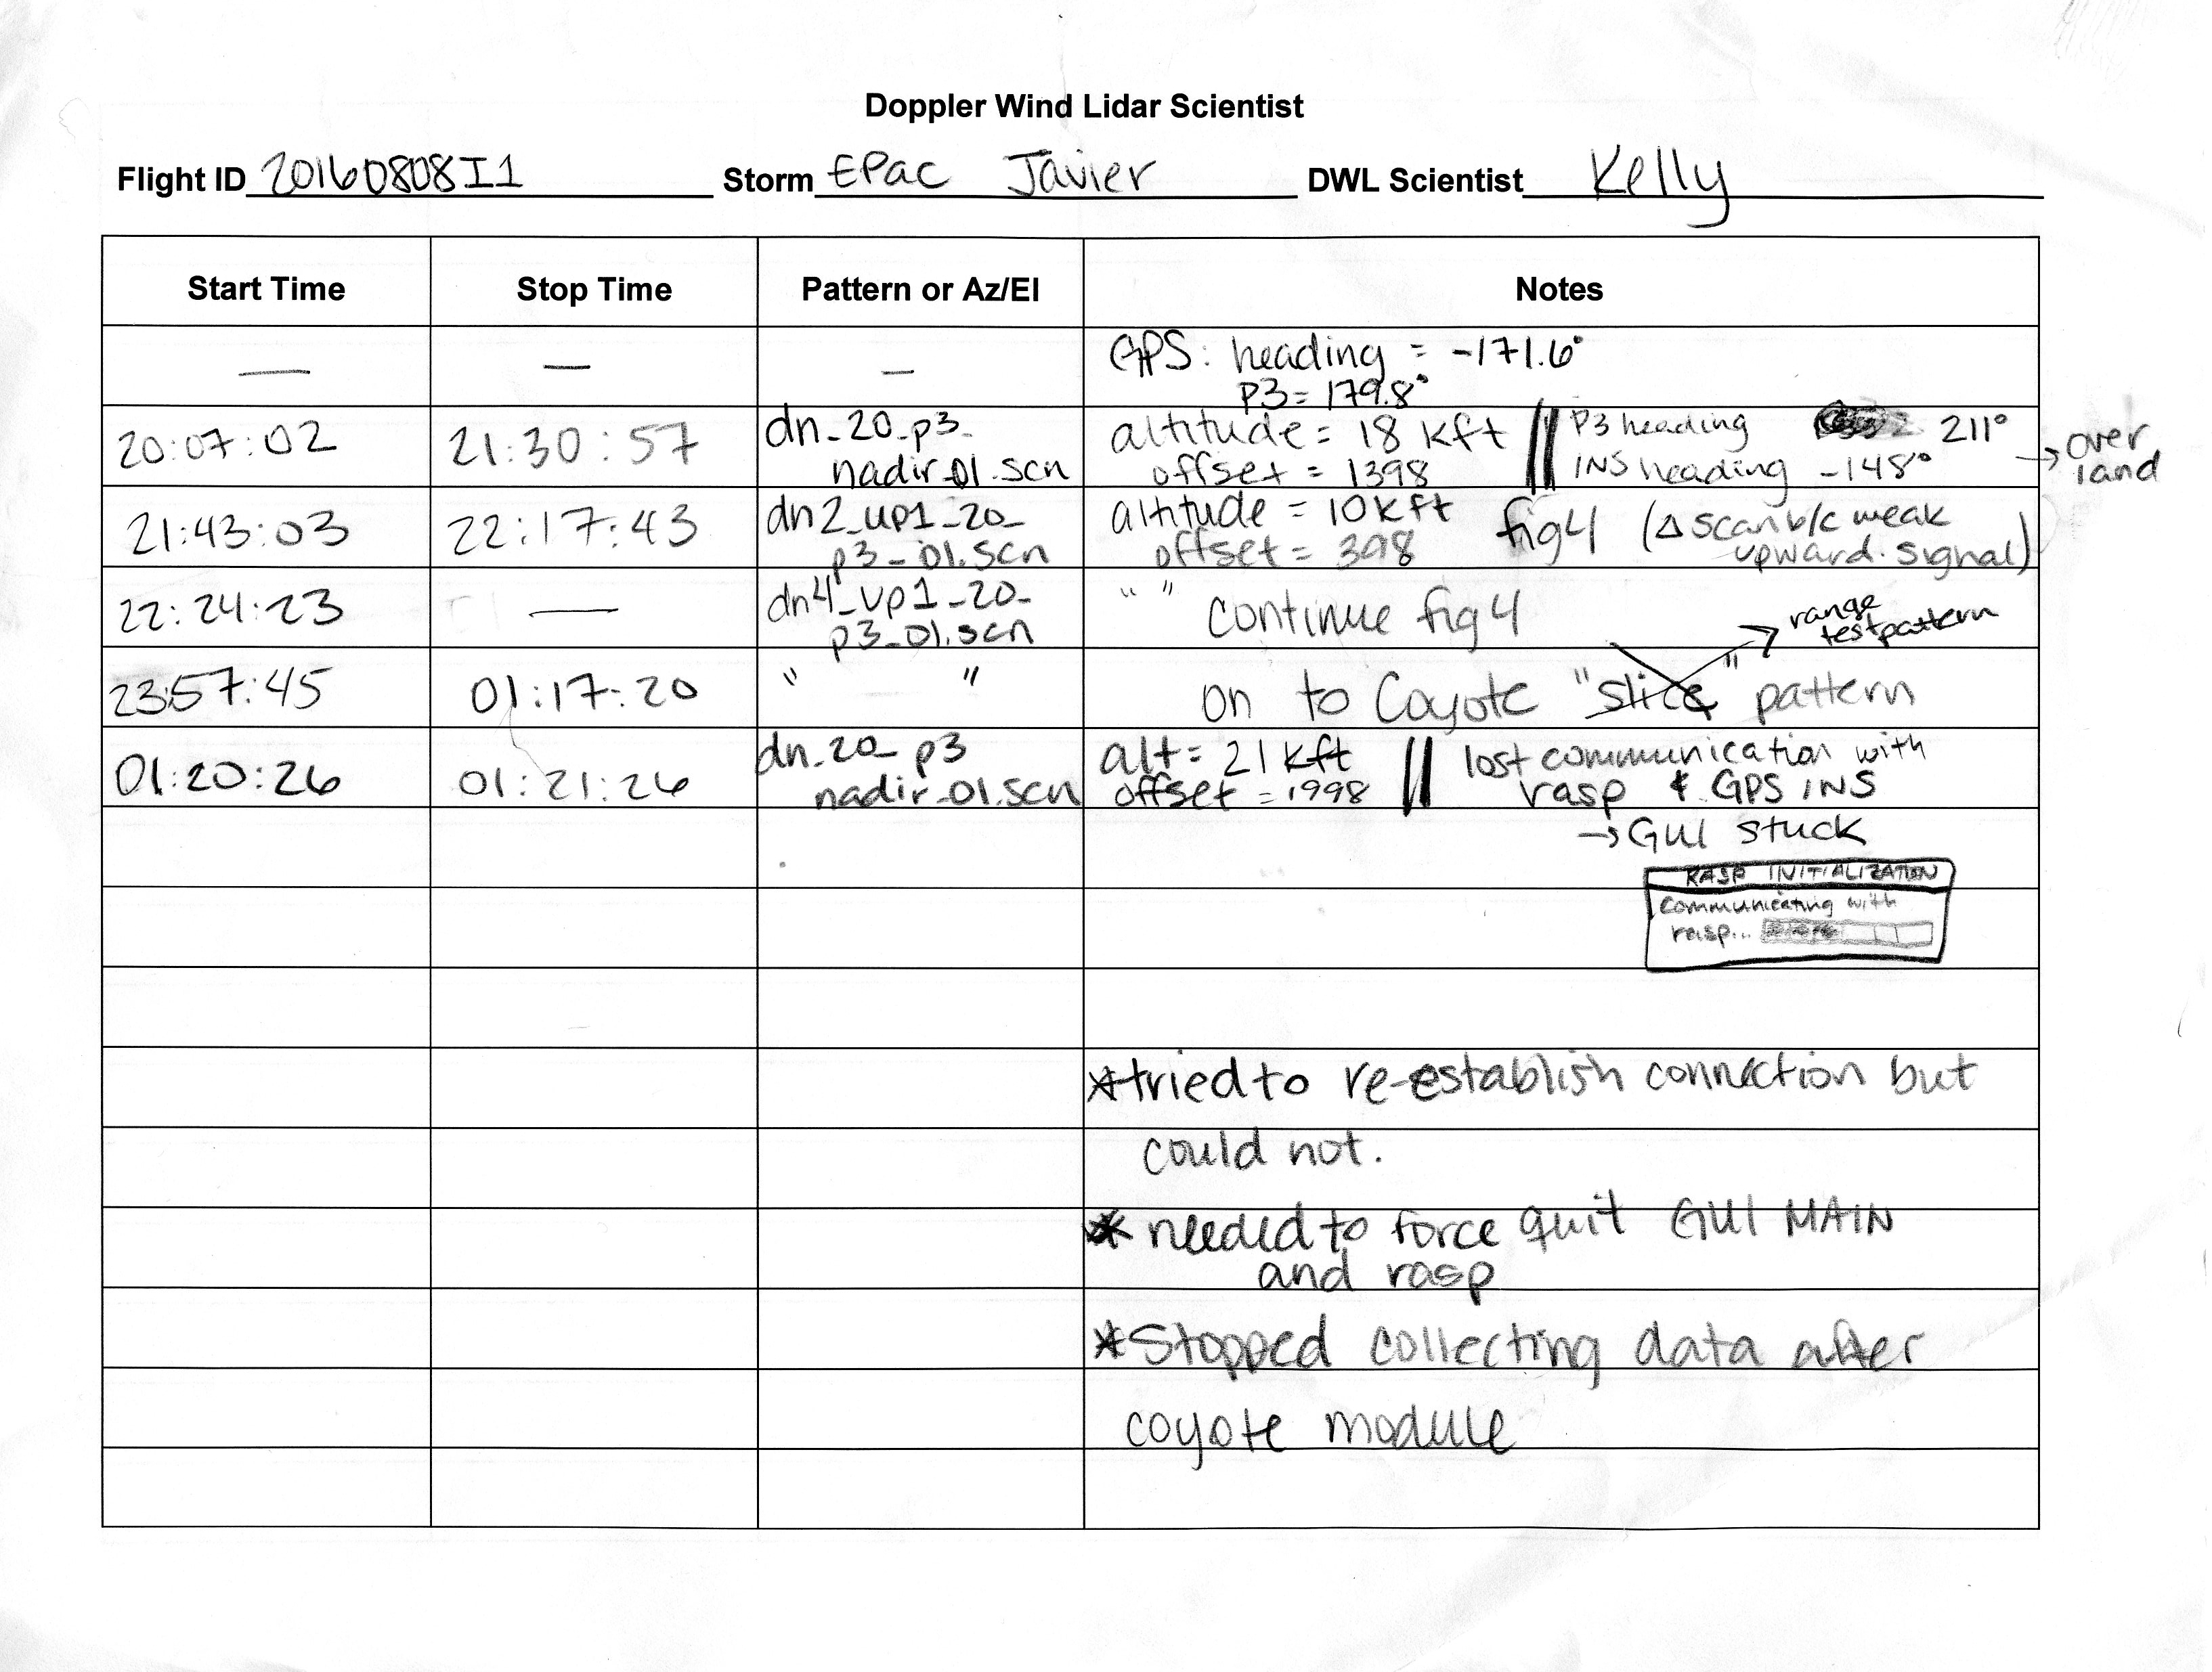 Doppler Wind Lidar Scientist
Flight ID 20160808I1 Storm EPac Javier DWL Scientist Kelly
Start Time Stop Time Pattern or Az/El Notes
— — — GPS: heading = -171.6°
P3 = 179.8°
20:07:02 21:30:57 dn_20_p3_ altitude = 18 kft || P3 heading 211°
nadir_01.scn offset = 1398 INS heading -148° → over
land
21:43:03 22:17:43 dn2_up1_20_ altitude = 10 kft fig 4 (Δ scan b/c weak
p3_01.scn offset = 398 upward signal)
22:24:23 — dn4_up1_20_ " " continue fig 4
p3_01.scn
→ range
test pattern
23:57:45 01:17:20 " " on to Coyote "slice" pattern
01:20:26 01:21:26 dn_20_p3 alt = 21 kft || lost communication with
nadir_01.scn offset = 1998 rasp & GPS INS
→ GUI stuck
RASP INITIALIZATION
Communicating with
rasp...
*tried to re-establish connection but
could not.
* needed to force quit GUI MAIN
and rasp
*Stopped collecting data after
coyote module